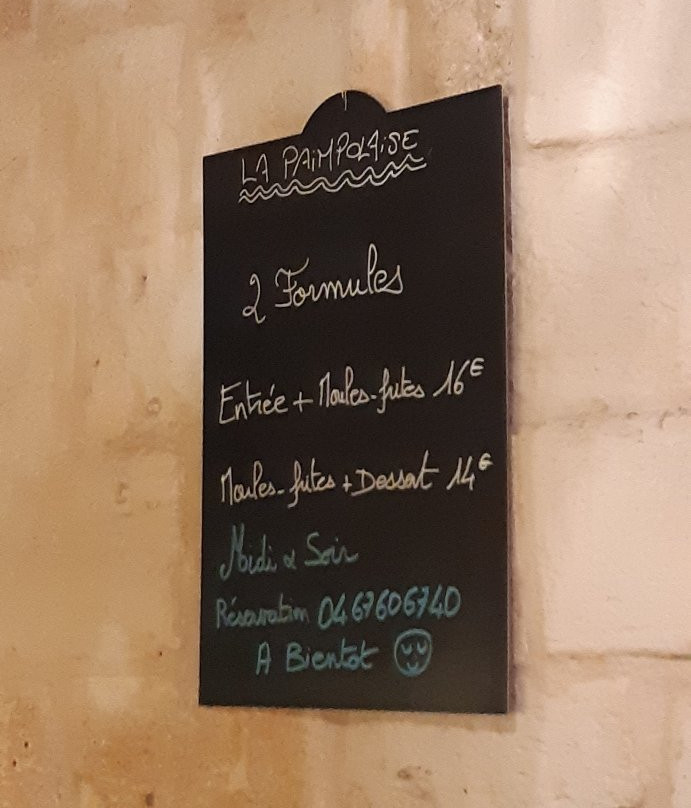 LA PAiMPOLAiSE
2 Formules
Entrée + Moules-frites 16€
Moules-frites + Dessert 14€
Midi & Soir
Réservation 0467606740
A Bientot